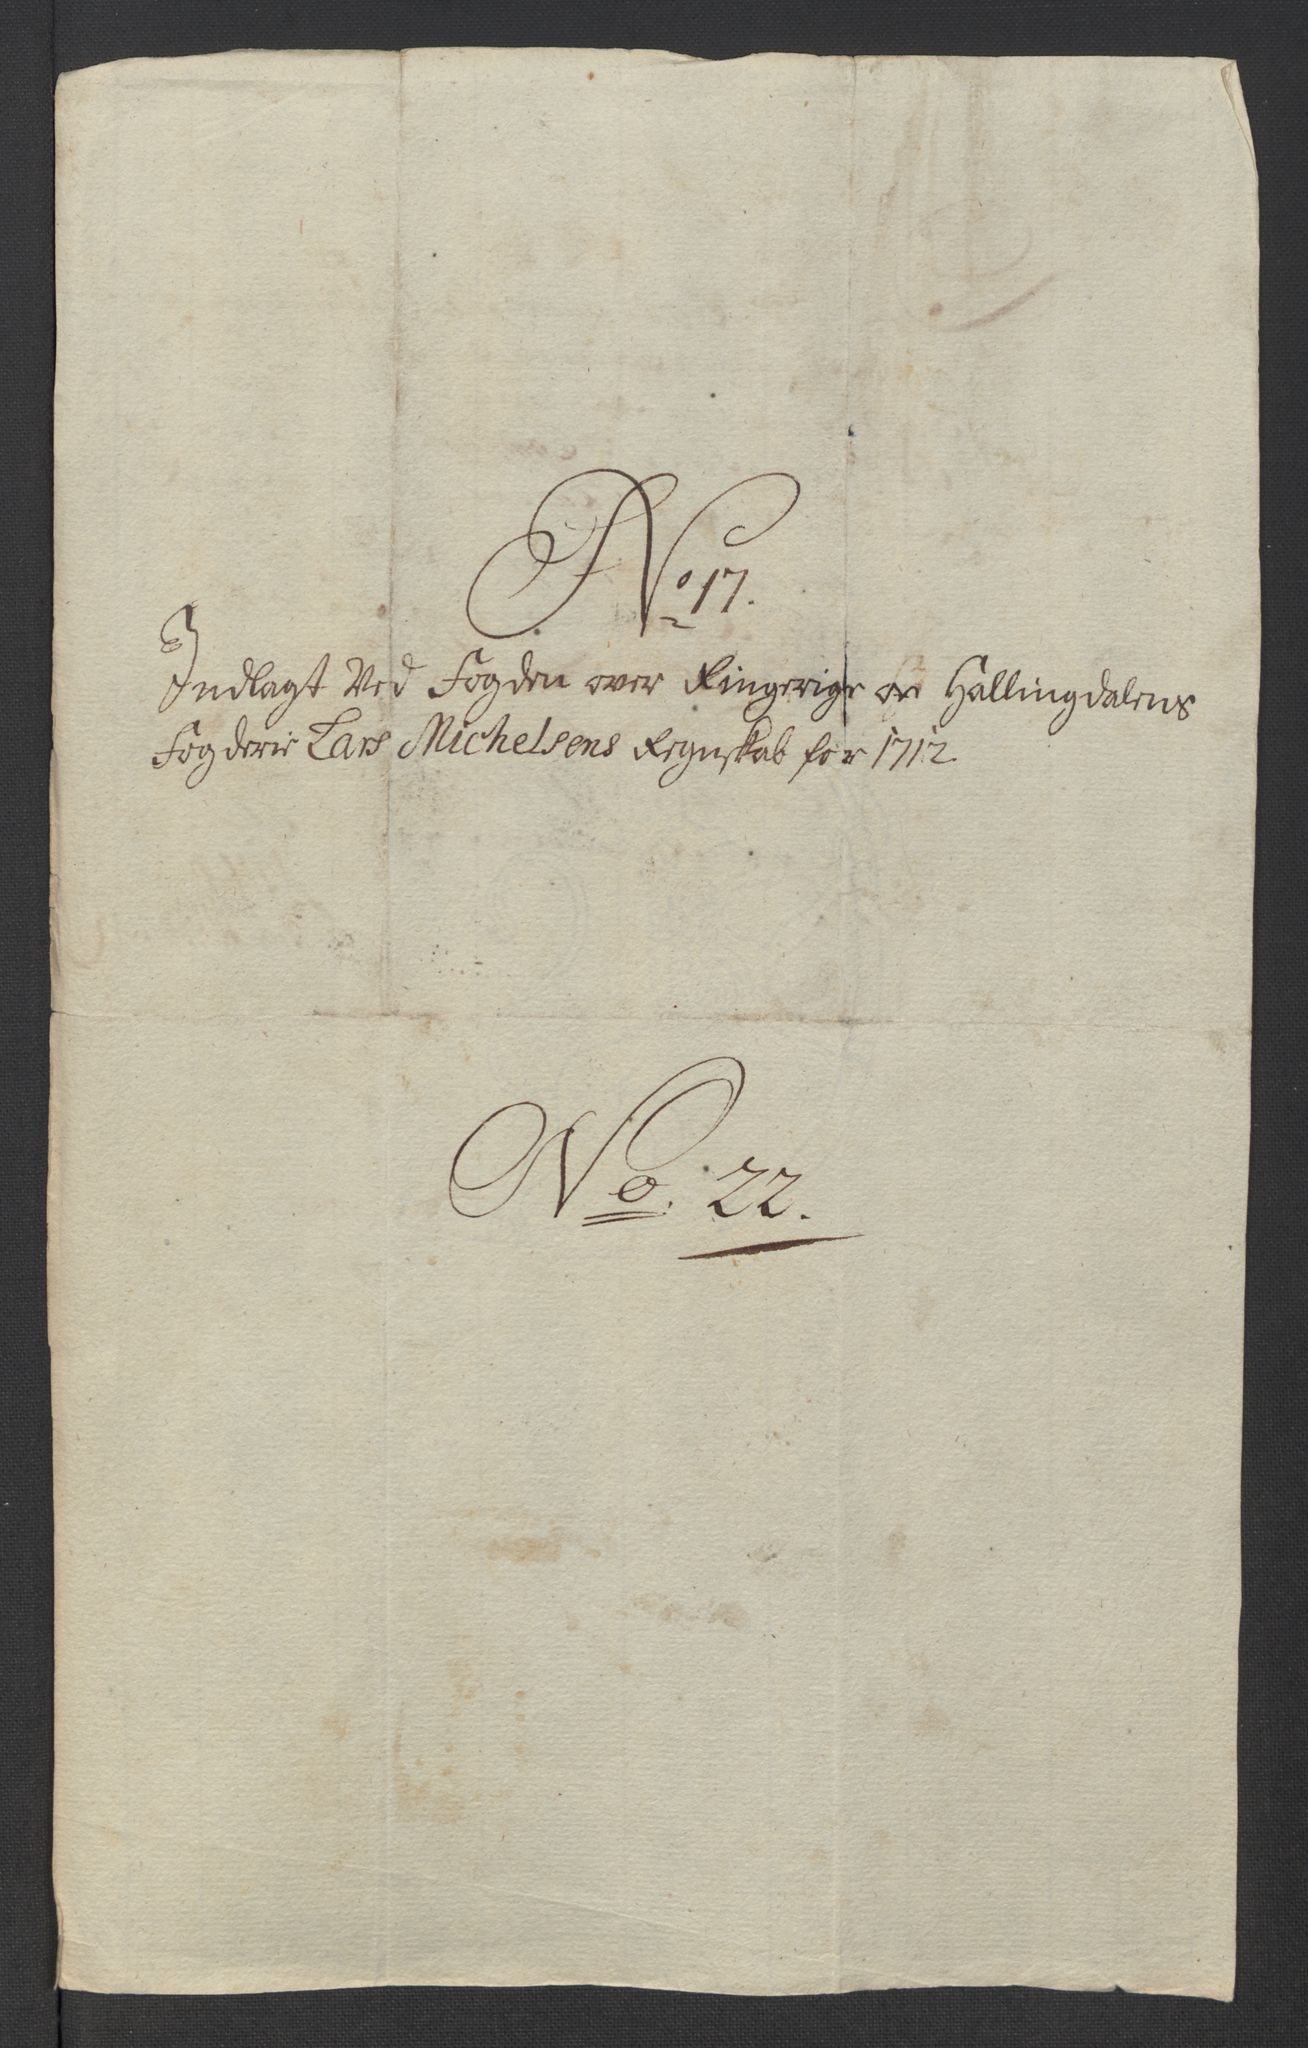 No 17.
Indlagt Ved Fogden over Ringerige oc Hallingdalens
Fogderie Lars Michelsens Regnskab for 1712
No. 22.